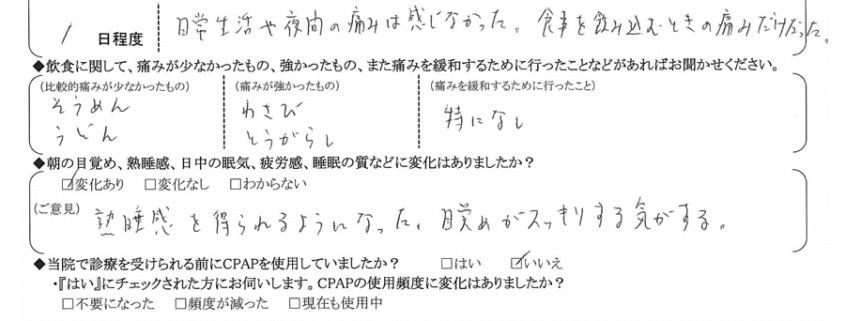 1 日程度 日常生活や夜間の痛みは感じなかった。食事を飲み込むときの痛みだけだった。
◆飲食に関して、痛みが少なかったもの、強かったもの、また痛みを緩和するために行ったことなどがあればお聞かせください。
(比較的痛みが少なかったもの) (痛みが強かったもの) (痛みを緩和するために行ったこと)
そうめん わさび 特になし
うどん とうがらし
◆朝の目覚め、熟睡感、日中の眠気、疲労感、睡眠の質などに変化はありましたか?
☑変化あり □変化なし □わからない
(ご意見) 熟睡感を得られるようになった。目覚めがスッキリする気がする。
◆当院で診療を受けられる前にCPAPを使用していましたか? □はい ☑いいえ
・『はい』にチェックされた方にお伺いします。CPAPの使用頻度に変化はありましたか?
□不要になった □頻度が減った □現在も使用中